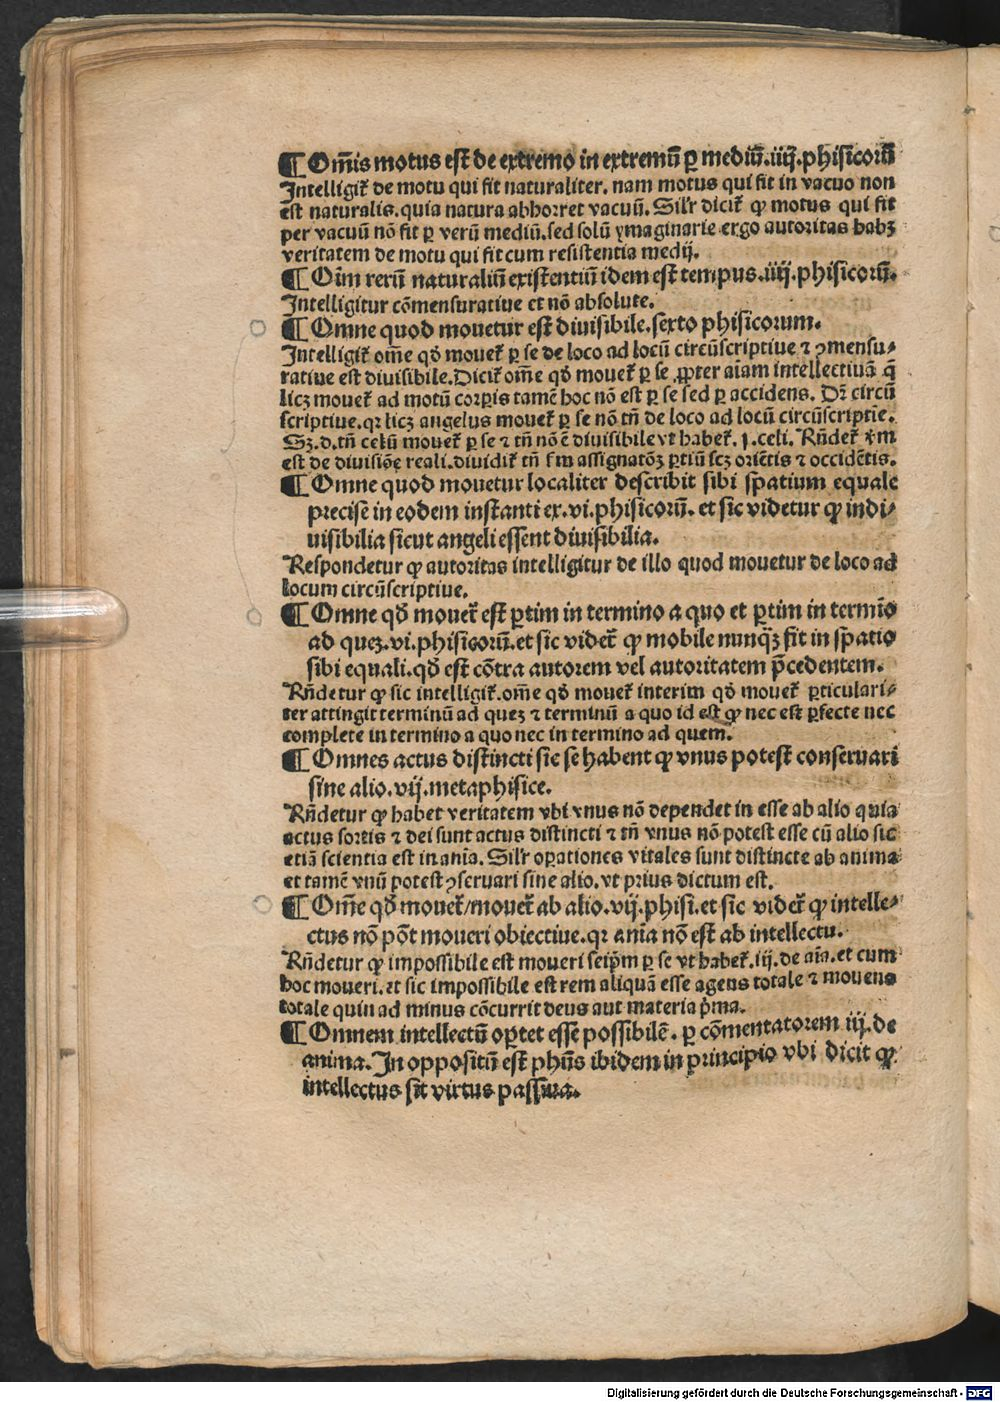 ¶ Om̄is motus est de extremo in extremū ꝑ mediū.iiij.phisicorū
Intelligit᷑ de motu qui fit naturaliter. nam motus qui fit in vacuo non
est naturalis.quia natura abhorret vacuū. Sil'r dicit᷑ ꝙ motus qui fit
per vacuū nō fit ꝑ verū mediū.sed solū ymaginarie ergo autoritas habꝫ
veritatem de motu qui fit cum resistentia medij.
¶ Oīm rerū naturaliū existentiū idem est tempus.iiij.phisicorū.
Intelligitur cōmensuratiue et nō absolute.
¶ Omne quod mouetur est diuisibile.sexto phisicorum.
Intelligit᷑ om̄e qd̄ mouet᷑ ꝑ se de loco ad locū circūscriptiue ⁊ ꝯmensu⸗
ratiue est diuisibile.Dicit᷑ om̄e qd̄ mouet᷑ ꝑ se ꝓpter aīam intellectiuā q̄
licꝫ mouet᷑ ad motū corꝑis tamē hoc nō est ꝑ se sed ꝑ accidens. Dr̄ circū
scriptiue.qꝛ licꝫ angelus mouet᷑ ꝑ se nō tn̄ de loco ad locū circūscriptīe.
Sꝫ.d.tn̄ celū mouet᷑ ꝑ se ⁊ tn̄ nō ē diuisibile vt habet᷑. j.celi. Rn̄det᷑
est de diuisiōe reali.diuidit᷑ tn̄ assignatōꝫ ꝑtiū scꝫ oriētis ⁊ occidētis.
¶ Omne quod mouetur localiter describit sibi sp̄atium equale
precise in eodem instanti ex.vi.phisicorū. et sic videtur ꝙ indi⸗
uisibilia sicut angeli essent diuisibilia.
Respondetur ꝙ autoritas intelligitur de illo quod mouetur de loco ad
locum circūscriptiue.
¶ Omne qd̄ mouet᷑ est ꝑtim in termino a quo et ꝑtim in termīo
ad queꝫ.vi.phisicorū.et sic videt᷑ ꝙ mobile nunqꝫ̄ fit in sp̄atio
sibi equali.qd̄ est cōtra autorem vel autoritatem p̄cedentem.
Rn̄detur ꝙ sic intelligit᷑.om̄e qd̄ mouet᷑ interim qd̄ mouet᷑ ꝑticulari⸗
ter attingit terminū ad queꝫ ⁊ terminū a quo id est ꝙ nec est ꝑfecte nec
complete in termino a quo nec in termino ad quem.
¶ Omnes actus distincti sic se habent ꝙ vnus potest conseruari
sine alio.vij.metaphisice.
Rn̄detur ꝙ habet veritatem vbi vnus nō dependet in esse ab alio quia
actus sortis ⁊ dei sunt actus distincti ⁊ tn̄ vnus nō potest esse cū alio sic
etiā scientia est in aīa. Sil'r oꝑationes vitales sunt distincte ab anima
et tamē vnū potest ꝯseruari sine alio.vt prius dictum est.
¶ Om̄e qd̄ mouet᷑/mouet᷑ ab alio.vij.phisi.et sic videt᷑ ꝙ intelle⸗
ctus nō pōt moueri obiectiue.qꝛ aīa nō est ab intellectu.
Rn̄detur ꝙ impossibile est moueri seip̄m ꝑ se vt habet᷑.iij.de aīa.et cum
hoc moueri.et sic impossibile est rem aliquā esse agens totale ⁊ mouens
totale quin ad minus cōcurrit deus aut materia p̄ma.
¶ Omnem intellectū oꝑtet esse possibilē. ꝑ cōmentatorem iij.de
anima. In oppositū est ph̄us ibidem in principio vbi dicit ꝙ
intellectus sit virtus passiua.
Digitalisierung gefördert durch die Deutsche Forschungsgemeinschaft - DFG